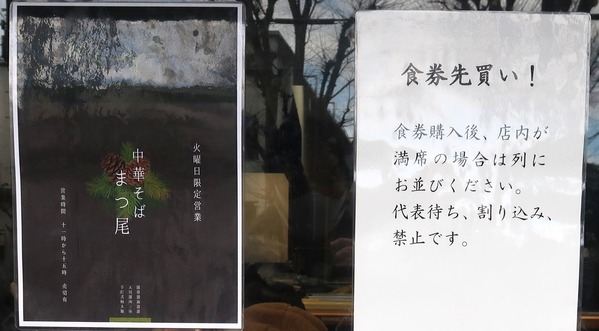 火曜日限定営業
中華そば
まつ尾
営業時間 十一時から十五時 売切有
食券先買い!
食券購入後、店内が
満席の場合は列に
お並びください。
代表待ち、割り込み、
禁止です。